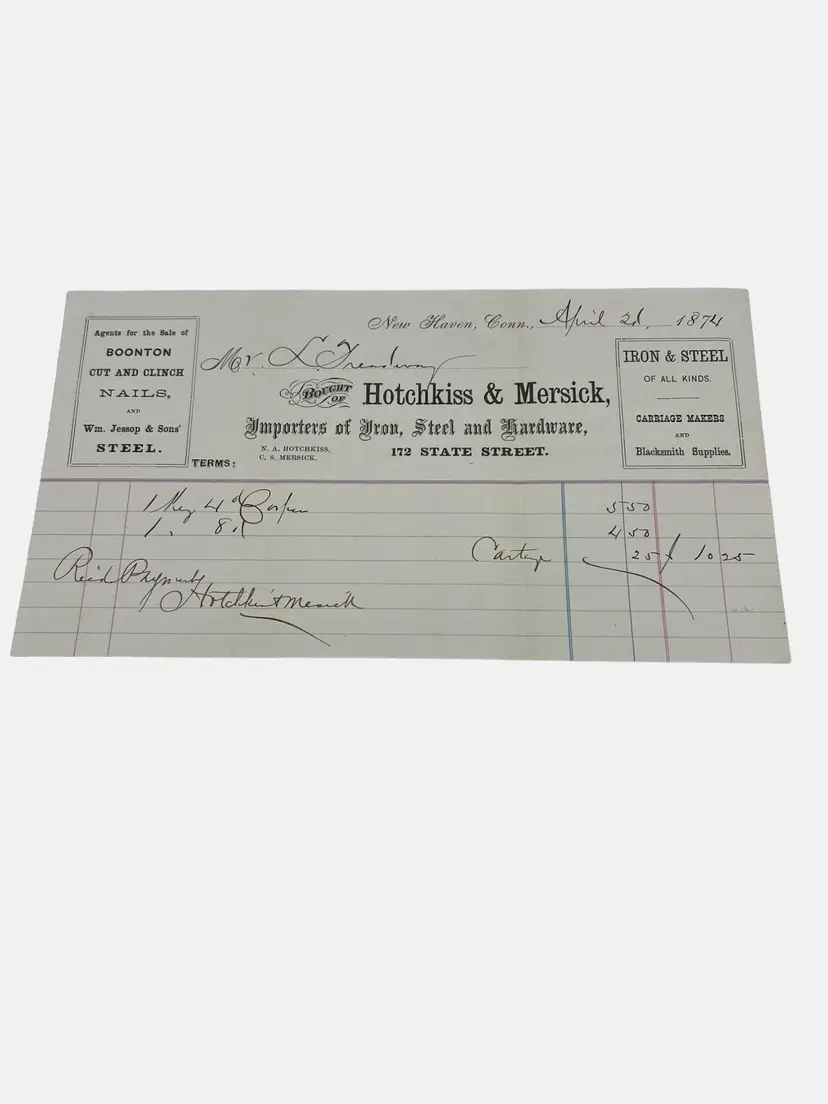 New Haven, Conn., April 2d, 1874
Mr. L. Treadway
BOUGHT OF Hotchkiss & Mersick,
Importers of Iron, Steel and Hardware,
N. A. HOTCHKISS,
C. S. MERSICK.
172 STATE STREET.
TERMS:
Agents for the Sale of
BOONTON
CUT AND CLINCH
NAILS,
AND
Wm. Jessop & Sons'
STEEL.
IRON & STEEL
OF ALL KINDS.
CARRIAGE MAKERS
AND
Blacksmith Supplies.
1 Keg 4d 5 50
1 " 8d 4 50
Cartage 25 10 25
Rec'd Payment
Hotchkiss & Mersick